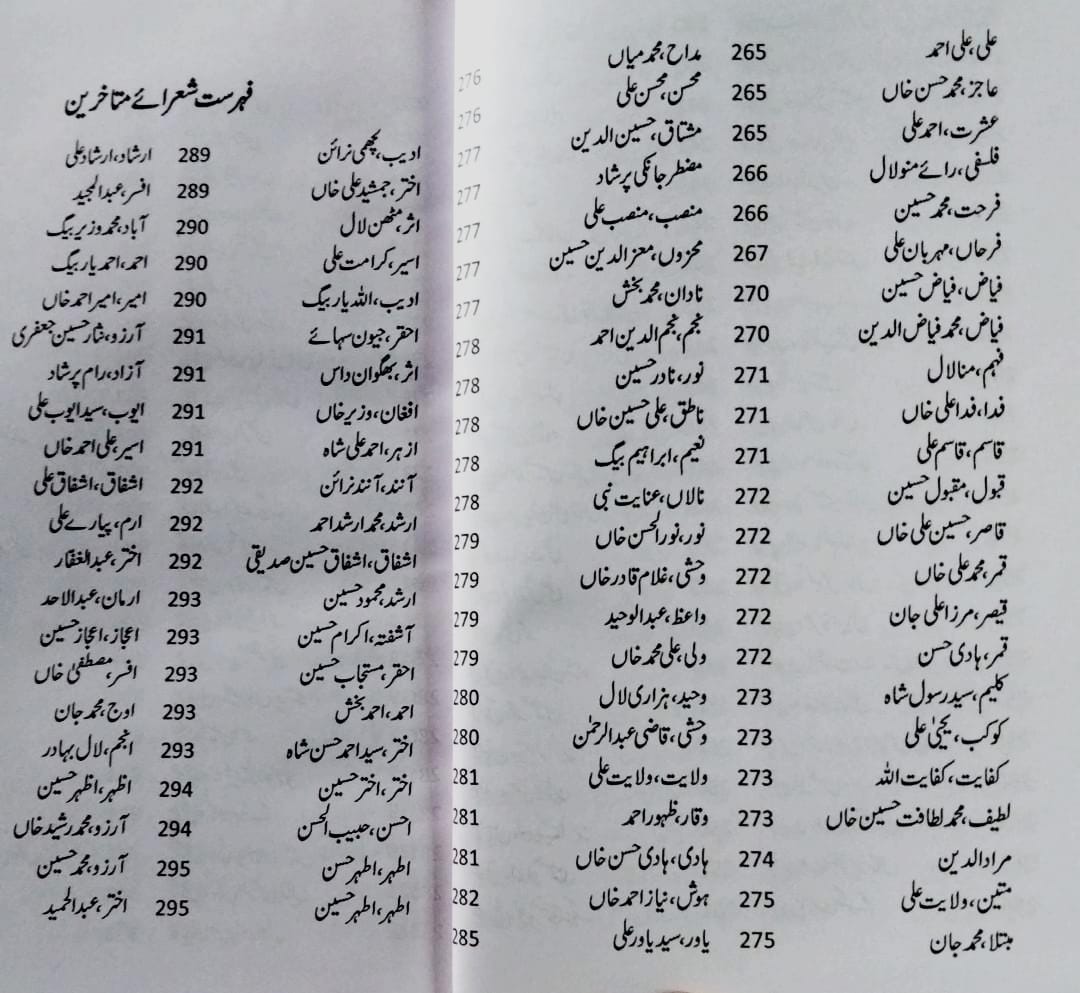 علی، علی احمد 265 مداح، محمد میاں 276
عاجز، محمد حسن خاں 265 محسن، محسن علی 276
عشرت، احمد علی 265 مشتاق، حسین الدین 277
فلسفی، رائے منولال 266 مضطر جانکی پرشاد 277
فرحت، محمد حسین 266 منصب، منصب علی 277
فرحاں، مہربان علی 267 محزوں، معز الدین حسین 277
فیاض، فیاض حسین 270 نادان، محمد بخش 277
فیاض، محمد فیاض الدین 270 نجم، نجم الدین احمد 278
فہم، منالال 271 نور، نادر حسین 278
فدا، فدا علی خاں 271 ناطق، علی حسین خاں 278
قاسم، قاسم علی 271 نعیم، ابراہیم بیگ 278
قبول، مقبول حسین 272 نالاں، عنایت نبی 278
قاصر، حسین علی خاں 272 نور، نور الحسن خاں 279
قمر، محمد علی خاں 272 وحشی، غلام قادر خاں 279
قیصر، مرزا علی جان 272 واعظ، عبد الوحید 279
قمر، ہادی حسن 272 ولی، علی محمد خاں 279
کلیم، سید رسول شاہ 273 وحید، ہزاری لال 280
کوکب، یحییٰ علی 273 وحشی، قاضی عبد الرحمٰن 280
کفایت، کفایت اللہ 273 ولایت، ولایت علی 281
لطیف، محمد لطافت حسین خاں 273 وقار، ظہور احمد 281
مراد الدین 274 ہادی، ہادی حسن خاں 281
متین، ولایت علی 275 ہوش، نیاز احمد خاں 282
مبتلا، محمد جان 275 یاور، سید یاور علی 285
فہرست شعرائے متاخرین
ادیب، لچھمی نرائن 289 ارشاد، ارشاد علی
اختر، جمشید علی خاں 289 افسر، عبد المجید
اثر، مٹھن لال 290 آباد، محمد وزیر بیگ
اسیر، کرامت علی 290 احمد، احمد یار بیگ
ادیب، اللہ یار بیگ 290 امیر، امیر احمد خاں
احقر، جیون سہائے 291 آرزو، نثار حسین جعفری
اثر، بھگوان داس 291 آزاد، رام پرشاد
افغان، وزیر خاں 291 ایوب، سید ایوب علی
ازہر، احمد علی شاہ 291 اسیر، علی احمد خاں
آنند، آنند نرائن 292 اشفاق، اشفاق علی
ارشد، محمد ارشد احمد 292 ارم، پیارے علی
اشفاق، اشفاق حسین صدیقی 292 اختر، عبد الغفار
ارشد، محمود حسین 293 ارمان، عبد الاحد
آشفتہ، اکرام حسین 293 اعجاز، اعجاز حسین
احقر، مستجاب حسین 293 افسر، مصطفیٰ خاں
احمد، احمد بخش 293 اوج، محمد جان
اختر، سید احمد حسن شاہ 293 انجم، لال بہادر
اختر، اختر حسین 294 اظہر، اظہر حسین
احسن، حبیب الحسن 294 آرزو، محمد رشید خاں
اطہر، اطہر حسن 295 آرزو، محمد حسین
اطہر، اطہر حسین 295 اختر، عبد الحمید